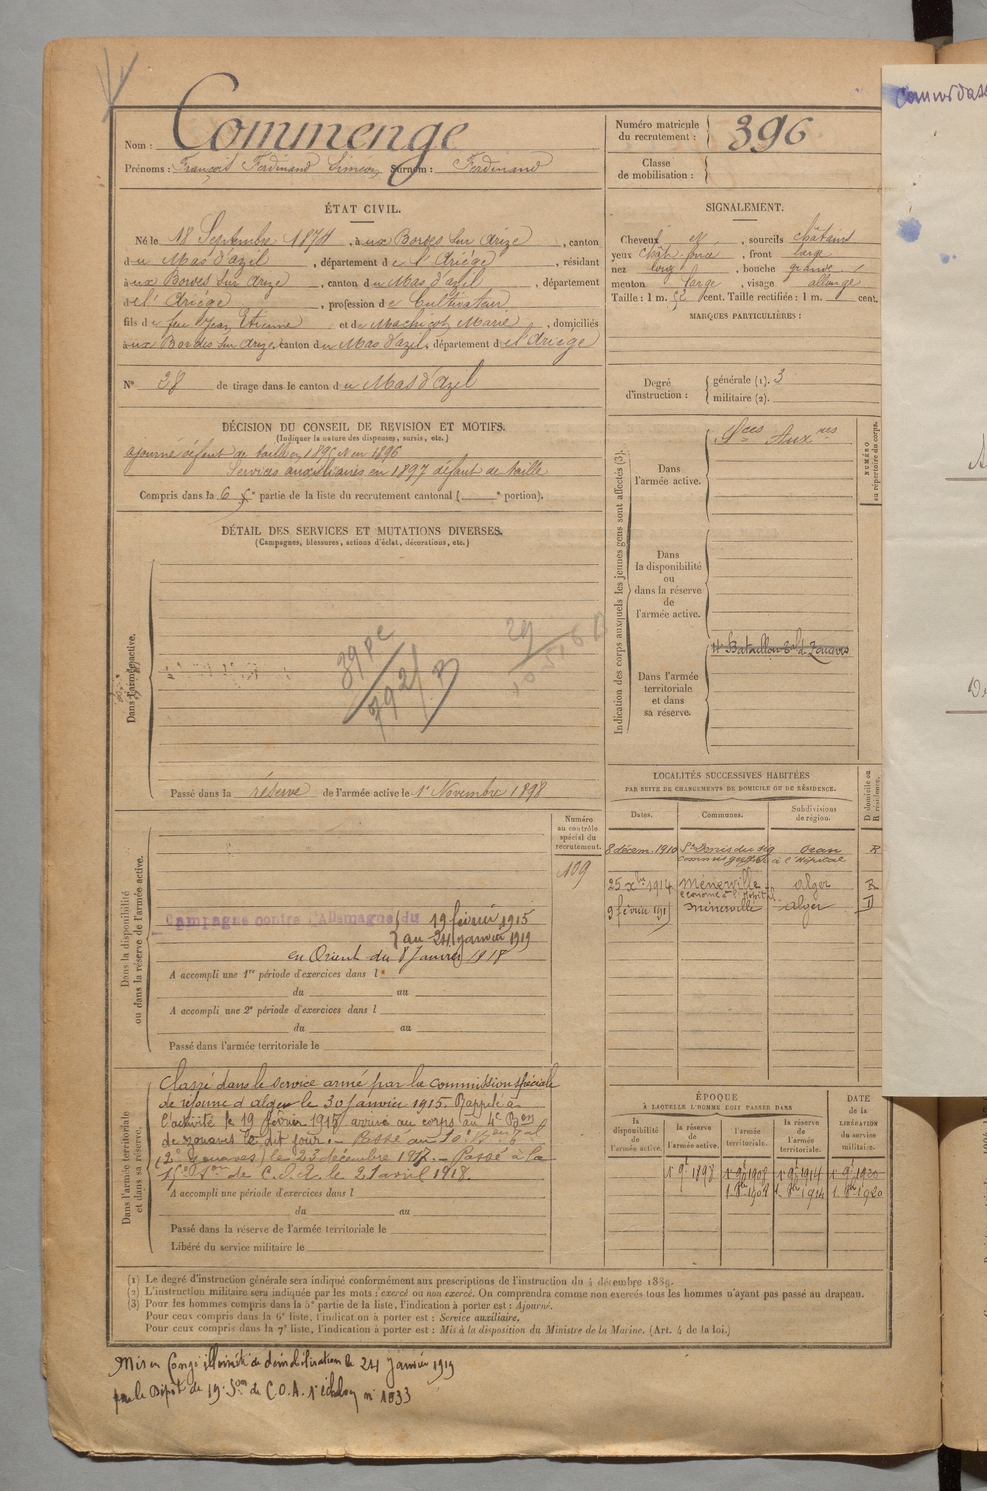 Nom : Commenge
Prénoms : François Ferdinand Simeon Surnom : Ferdinand
Numéro matricule du recrutement : 396
Classe de mobilisation :
ÉTAT CIVIL.
Né le 18 Septembre 1874, à ux Bordes sur Arize, canton
du Mas d'azil, département de l'Ariège, résidant
à ux Bordes sur Arize, canton du Mas d'azil, département
de l'Ariège, profession de Cultivateur
fils de feu Jean Etienne et de Machicot Marie, domiciliés
à ux Bordes sur Arize, canton du Mas d'azil, département de l'Ariège
N° 28 de tirage dans le canton du Mas d'Azil
SIGNALEMENT.
Cheveux et, sourcils châtains
yeux chât. foncé, front large
nez long, bouche grande
menton large, visage allongé
Taille : 1 m. 52 cent. Taille rectifiée : 1 m. cent.
MARQUES PARTICULIÈRES :
Degré d'instruction : générale (1). 3
militaire (2).
DÉCISION DU CONSEIL DE REVISION ET MOTIFS.
(Indiquer la nature des dispenses, sursis, etc.)
ajourné défaut de taille en 1895 et en 1896
Services auxiliaires en 1897 défaut de taille
Compris dans la 6 e partie de la liste du recrutement cantonal ( e portion).
DÉTAIL DES SERVICES ET MUTATIONS DIVERSES.
(Campagnes, blessures, actions d'éclat, décorations, etc.)
Dans l'armée active.
Passé dans la réserve de l'armée active le 1er Novembre 1898
Indication des corps auxquels les jeunes gens sont affectés (3).
NUMÉRO au répertoire du corps.
Dans l'armée active.
Sces Auxres
Dans la disponibilité ou dans la réserve de l'armée active.
Dans l'armée territoriale et dans sa réserve.
4e Bataillon Tal de Zouaves
LOCALITÉS SUCCESSIVES HABITÉES
PAR SUITE DE CHANGEMENTS DE DOMICILE OU DE RÉSIDENCE.
Dates. Communes. Subdivisions de région. D domicile ou R résidence.
8 décem. 1910 St Denis du Sig Oran R
à l'Hôpital
25 Xbre 1914 Ménerville Alger R
économe à l'Hôpital
9 février 191 Ménerville Alger D
Dans la disponibilité ou dans la réserve de l'armée active.
Numéro au contrôle spécial du recrutement.
109
Campagne contre l'Allemagne du 19 février 1915
au 24 janvier 1919
en Orient du 8 Janvier 1918
A accompli une 1re période d'exercices dans l
du au
A accompli une 2e période d'exercices dans l
du au
Passé dans l'armée territoriale le
Dans l'armée territoriale et dans sa réserve.
Classé dans le service armé par la commission spéciale
de réforme d'alger le 30 Janvier 1915. Rappelé à
l'activité le 19 février 1915 arrivé au corps au 4e Bon
de zouaves le dit jour. Passé au
2e Zouaves le 23 décembre 1917. Passé à la
de C.O.A. le 21 avril 1918.
A accompli une période d'exercices dans l
du au
Passé dans la réserve de l'armée territoriale le
Libéré du service militaire le
ÉPOQUE
À LAQUELLE L'HOMME DOIT PASSER DANS
la disponibilité de l'armée active. la réserve de l'armée active. l'armée territoriale. la réserve de l'armée territoriale.
DATE de la LIBÉRATION du service militaire.
1 9e 1898 1 9e 1908 1 9e 1914 1 9e 1920
1 8e 1908 1 8bre 1914 1 8bre 1920
(1) Le degré d'instruction générale sera indiqué conformément aux prescriptions de l'instruction du 4 décembre 1889.
(2) L'instruction militaire sera indiquée par les mots : exercé ou non exercé. On comprendra comme non exercés tous les hommes n'ayant pas passé au drapeau.
(3) Pour les hommes compris dans la 5e partie de la liste, l'indication à porter est : Ajourné.
Pour ceux compris dans la 6e liste, l'indication à porter est : Service auxiliaire.
Pour ceux compris dans la 7e liste, l'indication à porter est : Mis à la disposition du Ministre de la Marine. (Art. 4 de la loi.)
Mis en Congé illimité de démobilisation le 24 janvier 1919
par le Dépôt de 19e Son de C.O.A. 1er échelon n° 1033